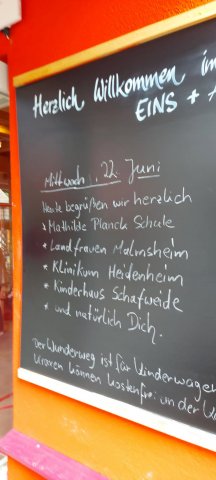 Herzlich Willkommen im
EINS +
Mittwoch, 22. Juni
Heute begrüßen wir herzlich
* Mathilde Planck Schule
* Landfrauen Malmsheim
* Klinikum Heidenheim
* Kinderhaus Schafweide
* und natürlich Dich.
Der Wunderweg ist für Kinderwagen
können kostenfrei an der